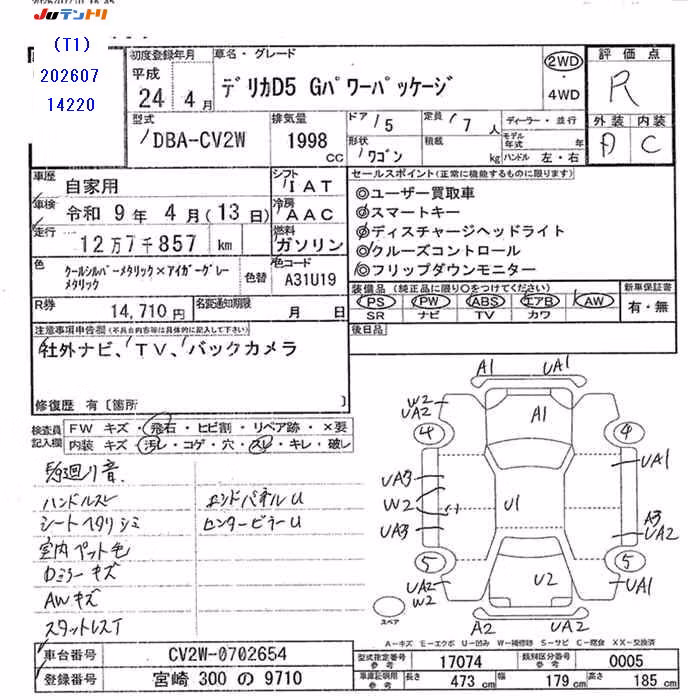 JUテントリ
(T1)
202607
14220
初度登録年月
平成
24 4月
車名・グレード
デリカD5 Gパワーパッケージ
2WD
・
4WD
評価点
R
外装 内装
D C
型式
DBA-CV2W
排気量
1998
CC
ドア 5
形状
ワゴン
定員 7人
積載 kg
ディーラー・並行
モデル年式 年
ハンドル 左・右
車歴
自家用
シフト
IAT
車検
令和 9年 4月(13日)
冷房
AAC
走行
12万7千857 km
燃料
ガソリン
色
クールシルバーメタリック×アイガーグレーメタリック
色替
色コード
A31U19
R券
14,710円
名変通知期限
月 日
セールスポイント(正常に機能するものに限ります)
◎ユーザー買取車
◎スマートキー
◎ディスチャージヘッドライト
◎クルーズコントロール
◎フリップダウンモニター
装備品 (純正品に限り○をつけてください)
PS PW ABS エアB AW
SR ナビ TV カワ
新車保証書
有・無
後日品
注意事項申告欄(不具合内容等は具体的に記入して下さい)
社外ナビ、TV、バックカメラ
修復歴 有〔箇所 〕
検査員記入欄
FW キズ・飛石・ヒビ割・リペア跡・×要
内装 キズ・汚レ・コゲ・穴・スレ・キレ・破レ
足廻り音
ハンドルスレ
シートヘタリシミ
室内ペット毛
Dミラーキズ
AWキズ
スタットレスT
エンドパネルU
センターピラーU
A1 UA1
W2
UA2
A1
4 4
UA3
W2
UA3
U1
UA1
A3
UA2
5 5
UA2
W2
U2
UA1
A2 UA2
スペア
A-キズ E-エクボ U-凹み W-補修跡 S-サビ C-腐食 XX-交換済
車台番号
CV2W-0702654
登録番号
宮崎 300 の 9710
型式指定番号
参考
17074
類別区分番号
参考
0005
車庫証明用
参考
長さ 473 cm
幅 179 cm
高さ 185 cm